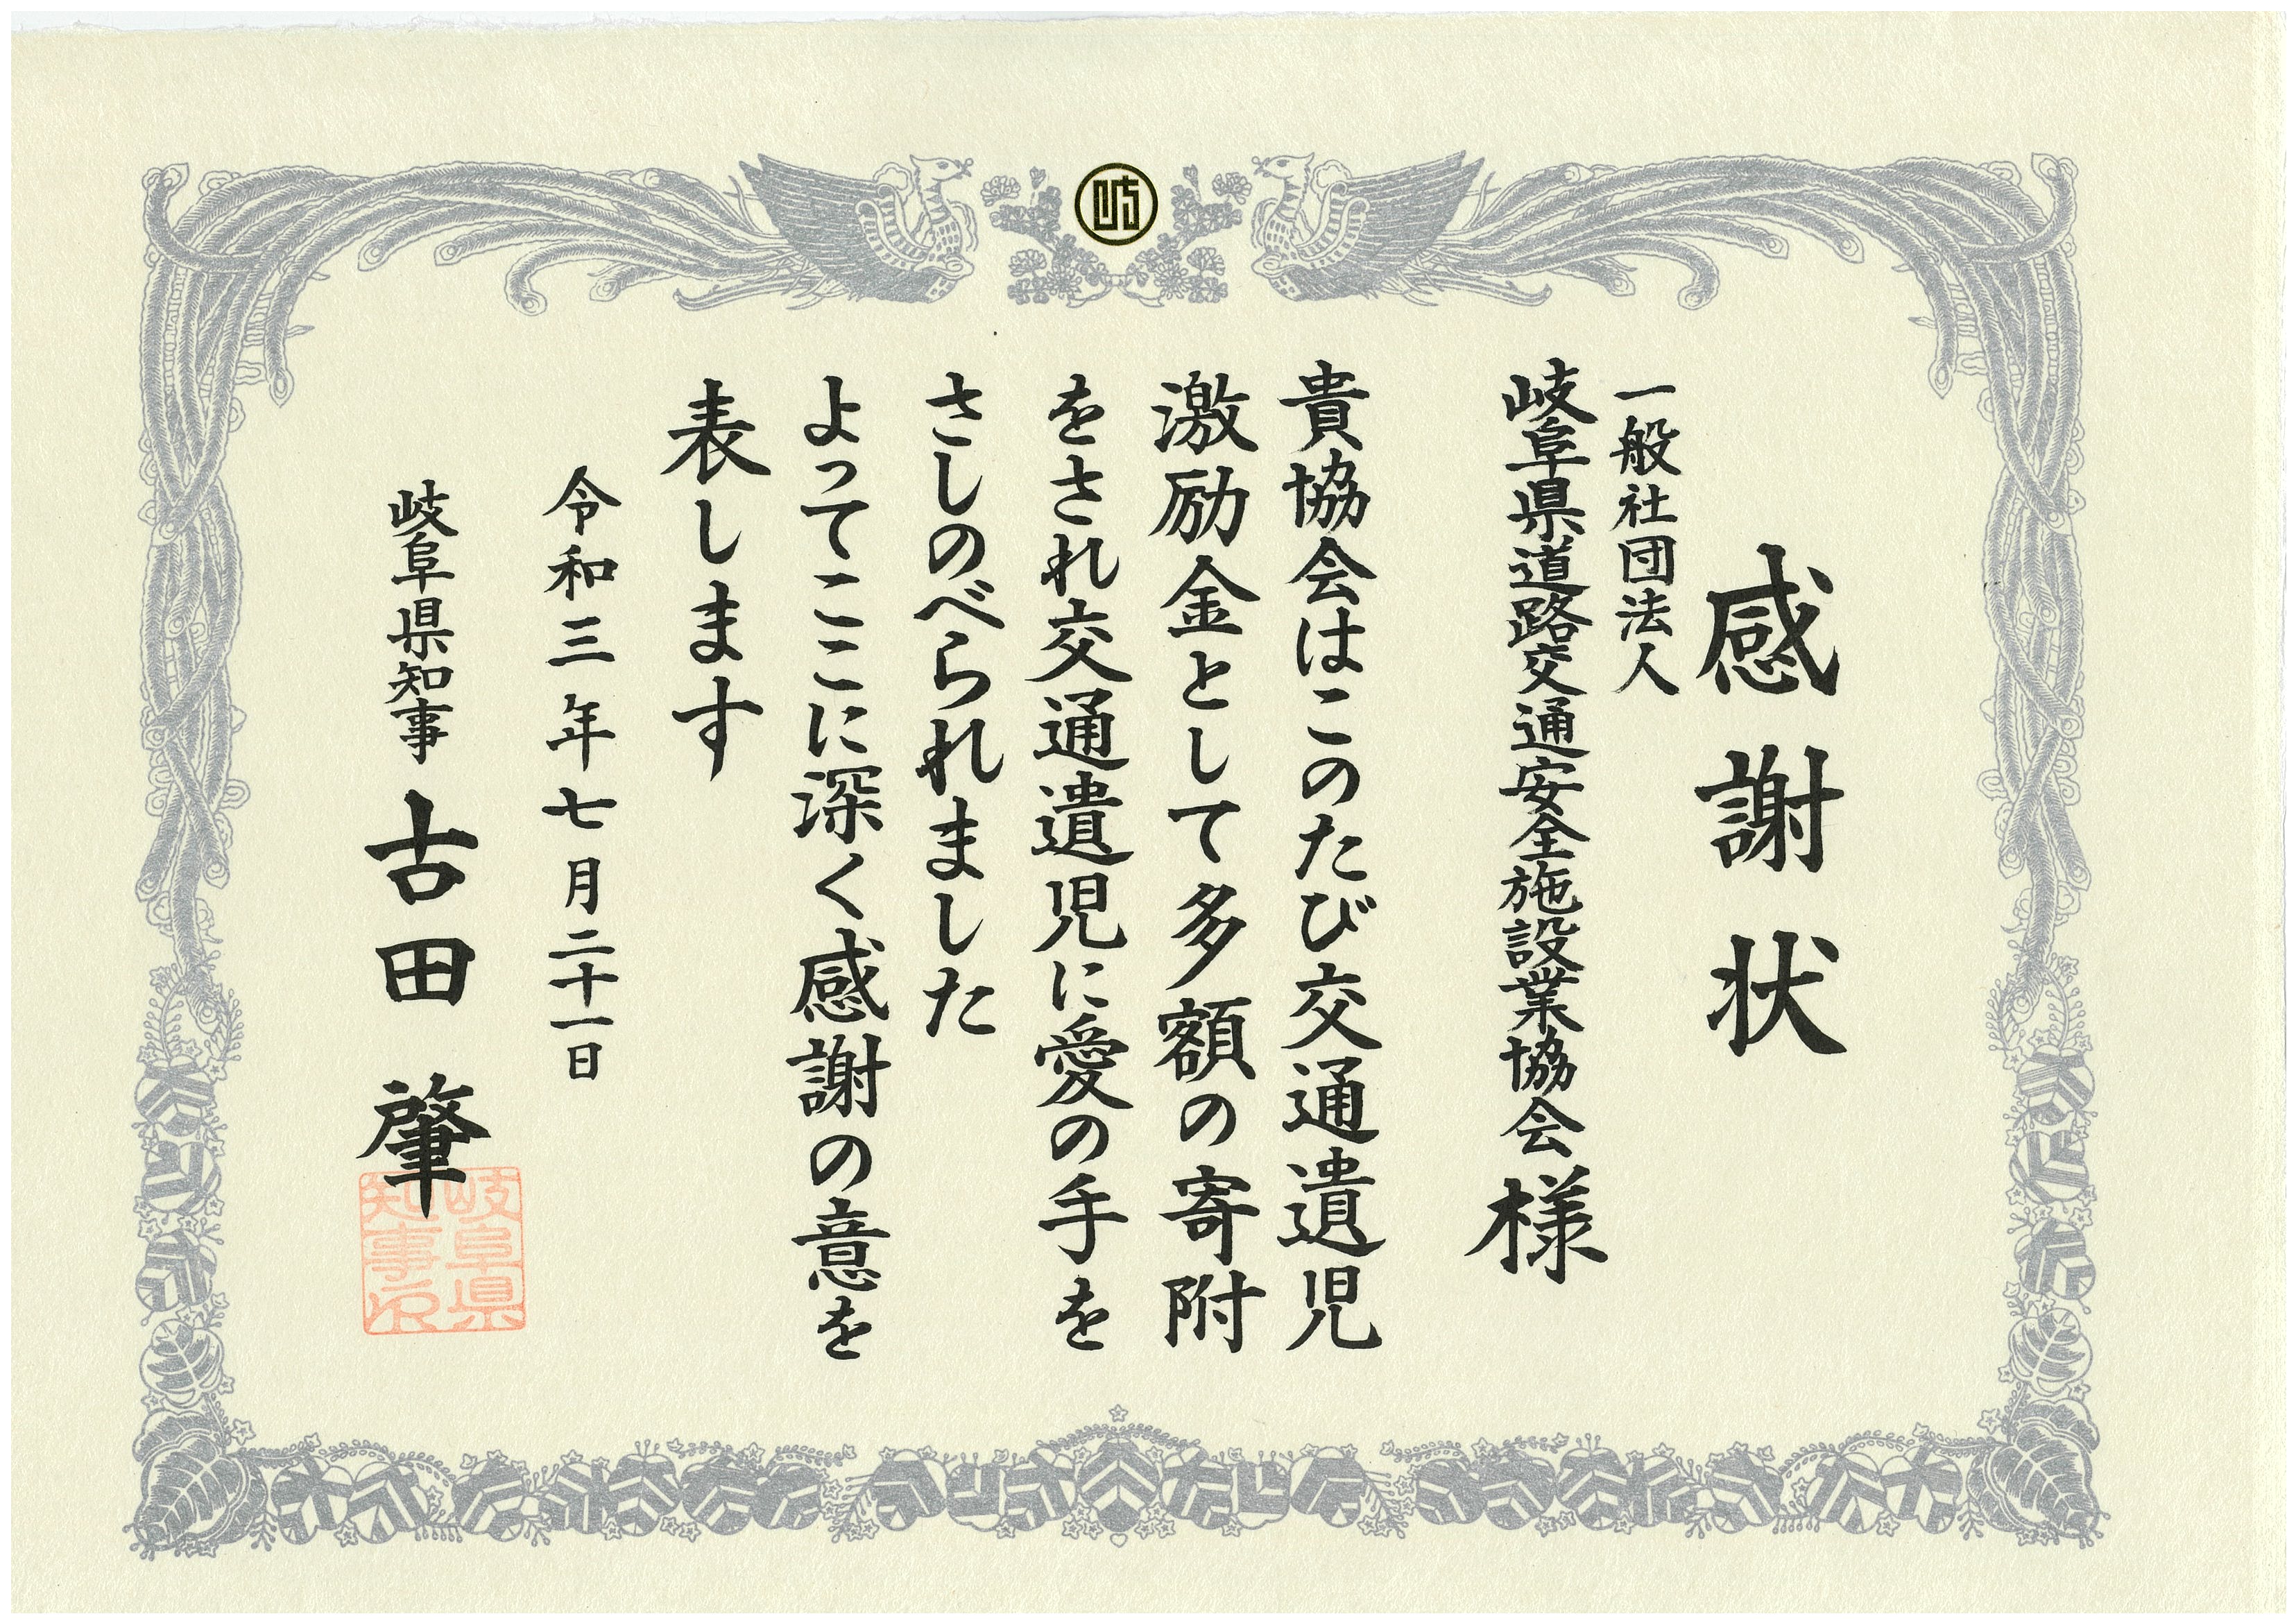 感謝状
一般社団法人
岐阜県道路交通安全施設業協会様
貴協会はこのたび交通遺児
激励金として多額の寄附
をされ交通遺児に愛の手を
さしのべられました
よってここに深く感謝の意を
表します
令和三年七月二十一日
岐阜県知事 古田 肇
岐阜県
知事印
岐